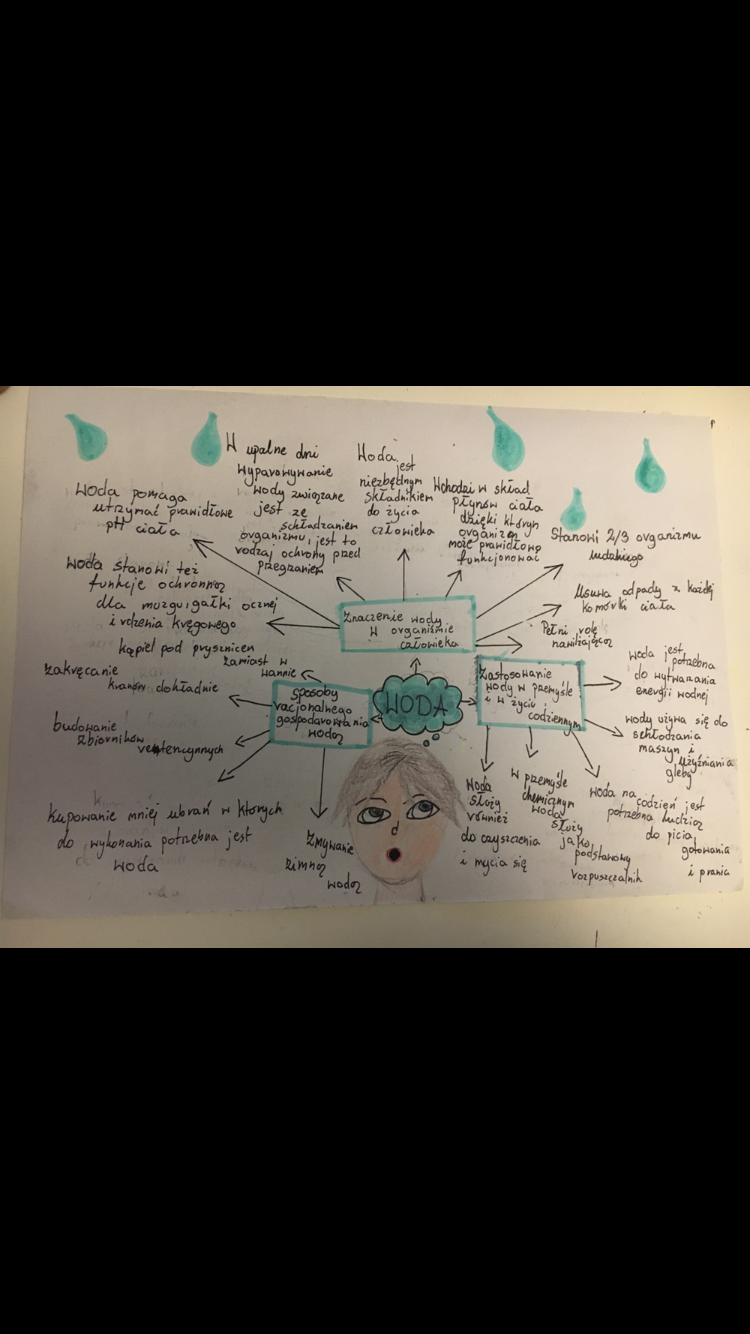 W upalne dni
wyparowywanie
wody związane
jest ze
schładzaniem
organizmu, jest to
rodzaj ochrony przed
przegrzaniem
Woda
jest
niezbędnym
składnikiem
do życia
człowieka
Wchodzi w skład
płynów ciała
dzięki którym
organizm
może prawidłowo
funkcjonować
Woda pomaga
utrzymać prawidłowe
pH ciała
Stanowi 2/3 organizmu
ludzkiego
Woda stanowi też
funkcje ochronną
dla mózgu, gałki ocznej
i rdzenia kręgowego
Usuwa odpady z każdej
komórki ciała
Pełni rolę
nawilżającą
Znaczenie wody
w organizmie
człowieka
kąpiel pod prysznicem
zamiast w
wannie
zakręcanie
kranów dokładnie
budowanie
zbiorników
retencyjnych
sposoby
racjonalnego
gospodarowania
wodą
WODA
Zastosowanie
wody w przemyśle
i w życiu
codziennym
woda jest
potrzebna
do wytwarzania
energii wodnej
wody używa się do
schłodzania
maszyn i
użyźniania
gleby
Kupowanie mniej ubrań w których
do wykonania potrzebna jest
woda
Zmywanie
zimną
wodą
Woda
służy
również
do czyszczenia
i mycia się
W przemyśle
chemicznym
woda
służy
jako
podstawowy
rozpuszczalnik
woda na codzień jest
potrzebna ludzią
do picia,
gotowania
i prania